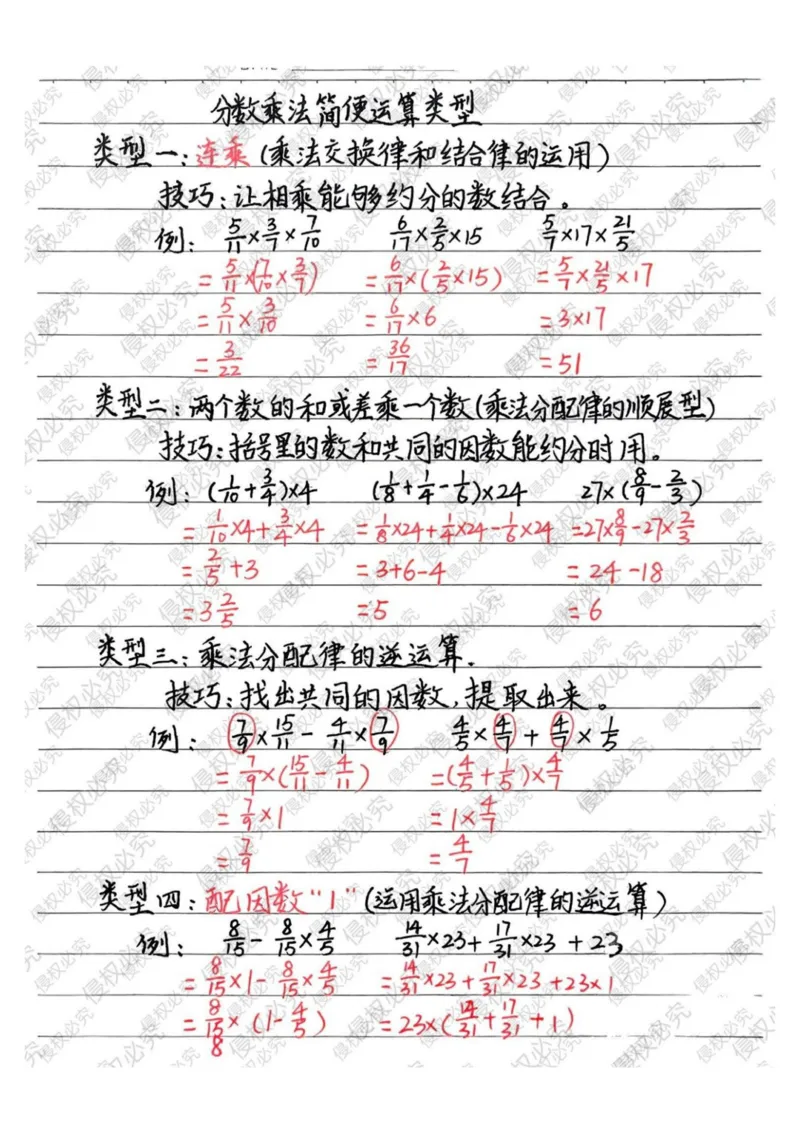 分数乘法简便运算类型
类型一：连乘（乘法交换律和结合律的运用）
技巧：让相乘能够约分的数结合。
例： 5/11×3/7×7/10 6/17×2/5×15 5/7×17×21/5
=5/11×(7/10×3/7) =6/17×(2/5×15) =5/7×21/5×17
=5/11×3/10 =6/17×6 =3×17
=3/22 =36/17 =51
类型二：两个数的和或差乘一个数(乘法分配律的顺展型)
技巧：括号里的数和共同的因数能约分时用。
例：(1/10+3/4)×4 (1/8+1/4-1/6)×24 27×(8/9-2/3)
=1/10×4+3/4×4 =1/8×24+1/4×24-1/6×24 =27×8/9-27×2/3
=2/5+3 =3+6-4 =24-18
=3 2/5 =5 =6
类型三：乘法分配律的逆运算.
技巧：找出共同的因数,提取出来。
例： 7/9×15/11-4/11×7/9 4/5×4/7+4/7×1/5
=7/9×(15/11-4/11) =(4/5+1/5)×4/7
=7/9×1 =1×4/7
=7/9 =4/7
类型四：配因数"1"(运用乘法分配律的逆运算)
例： 8/15-8/15×4/5 14/31×23+17/31×23+23
=8/15×1-8/15×4/5 =14/31×23+17/31×23+23×1
=8/15×(1-4/5) =23×(14/31+17/31+1)
8
侵权必究